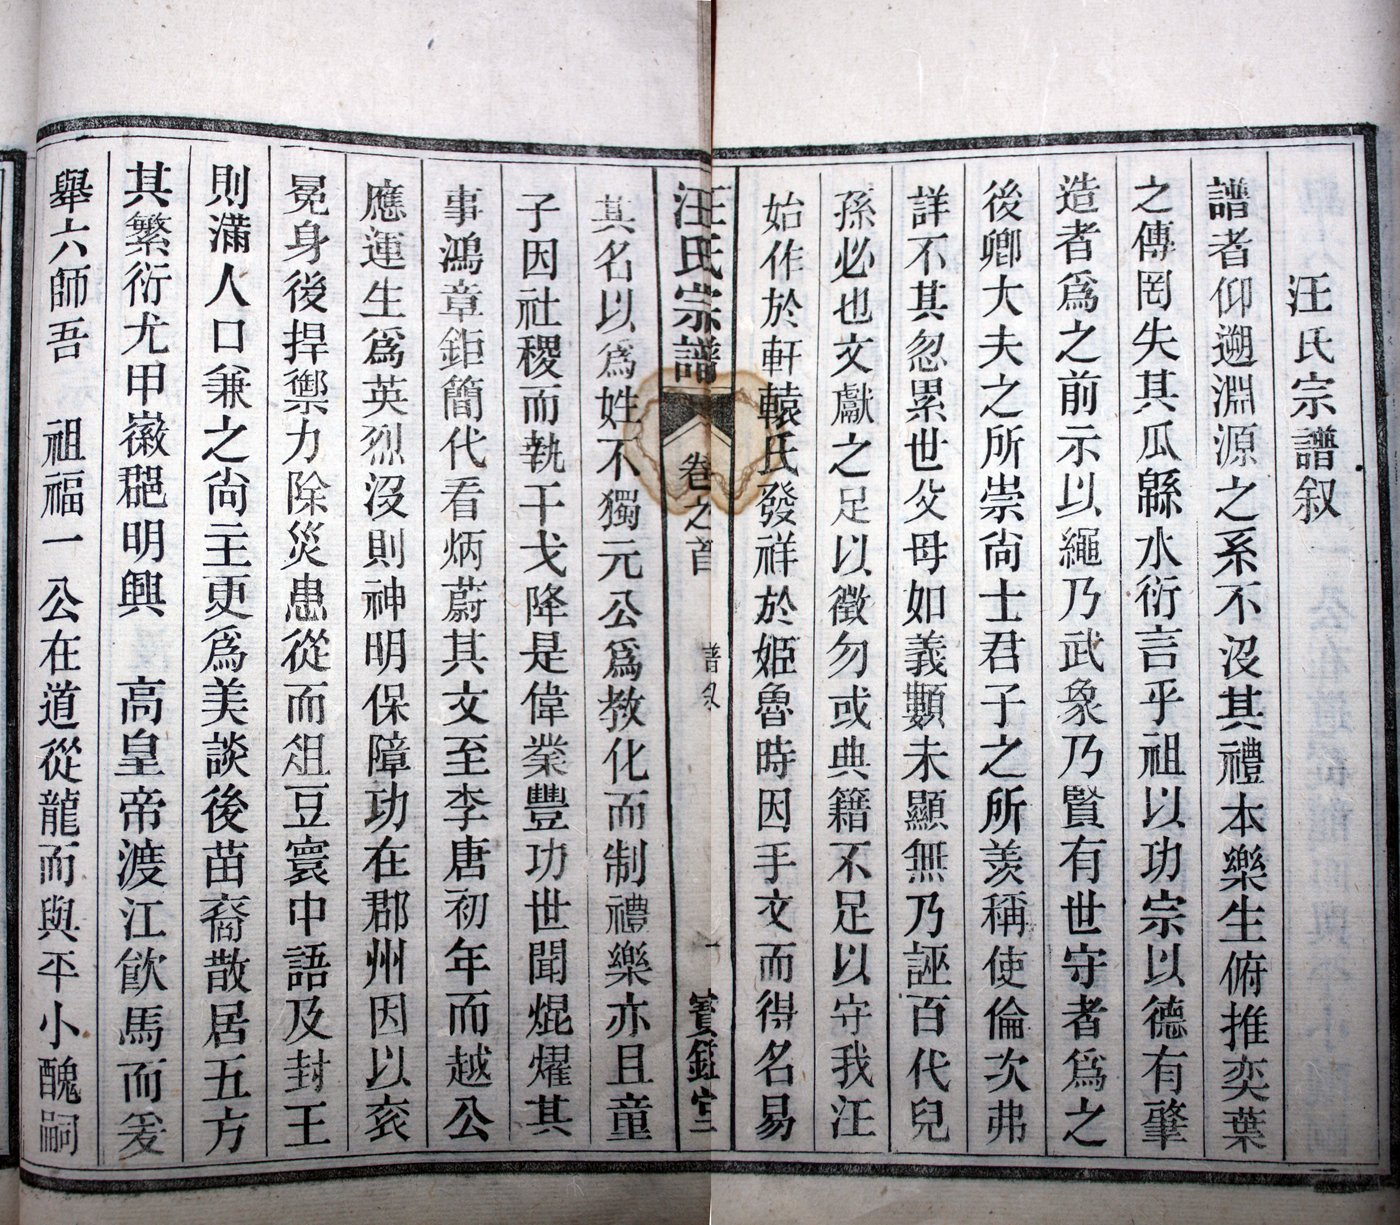 汪氏宗譜叙
譜者仰遡淵源之系不沒其禮本樂生俯推奕葉
之傳罔失其瓜緜水衍言乎祖以功宗以德有肇
造者爲之前示以繩乃武象乃賢有世守者爲之
後卿大夫之所崇尙士君子之所羨稱使倫次弗
詳不其忽累世父母如義顙未顯無乃誣百代兒
孫必也文獻之足以徵勿或典籍不足以守我汪
始作於軒轅氏發祥於姬魯時因手文而得名易
汪氏宗譜
卷之首
譜叙
一
寳鑑堂
其名以爲姓不獨元公爲教化而制禮樂亦且童
子因社稷而執干戈降是偉業豐功世聞焜燿其
事鴻章鉅簡代看炳蔚其文至李唐初年而越公
應運生爲英烈沒則神明保障功在郡州因以衮
冕身後捍禦力除災患從而俎豆寰中語及封王
則滿人口兼之尙主更爲美談後苗裔散居五方
其繁衍尤甲徽郡明興　高皇帝渡江飮馬而爰
舉六師吾　祖福一公在道從龍而與平小醜嗣